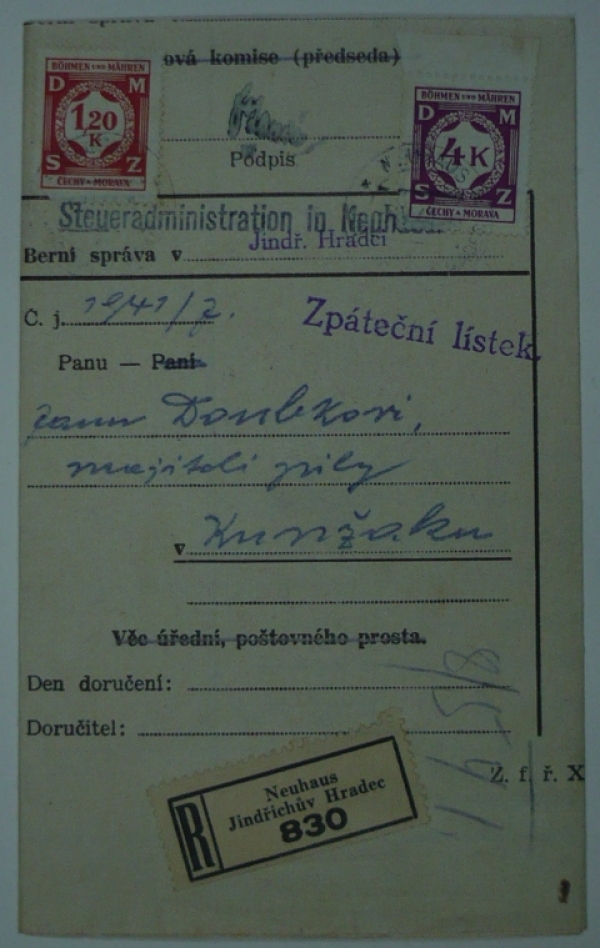 Berní správa
ová komise (předseda)
BÖHMEN UND MÄHREN
D M
1.20
K
S Z
ČECHY A MORAVA
BÖHMEN UND MÄHREN
D M
4 K
S Z
ČECHY A MORAVA
Podpis
Steueradministration in Neuhaus
Jindř. Hradci
Berní správa v
Č. j. 1941/7.
Zpáteční lístek
Panu — Paní
panu Doubkovi,
majiteli pily
v Kunžaku
Věc úřední, poštovného prosta.
Den doručení:
Doručitel:
Z. f. ř. X
R
Neuhaus
Jindřichův Hradec
830